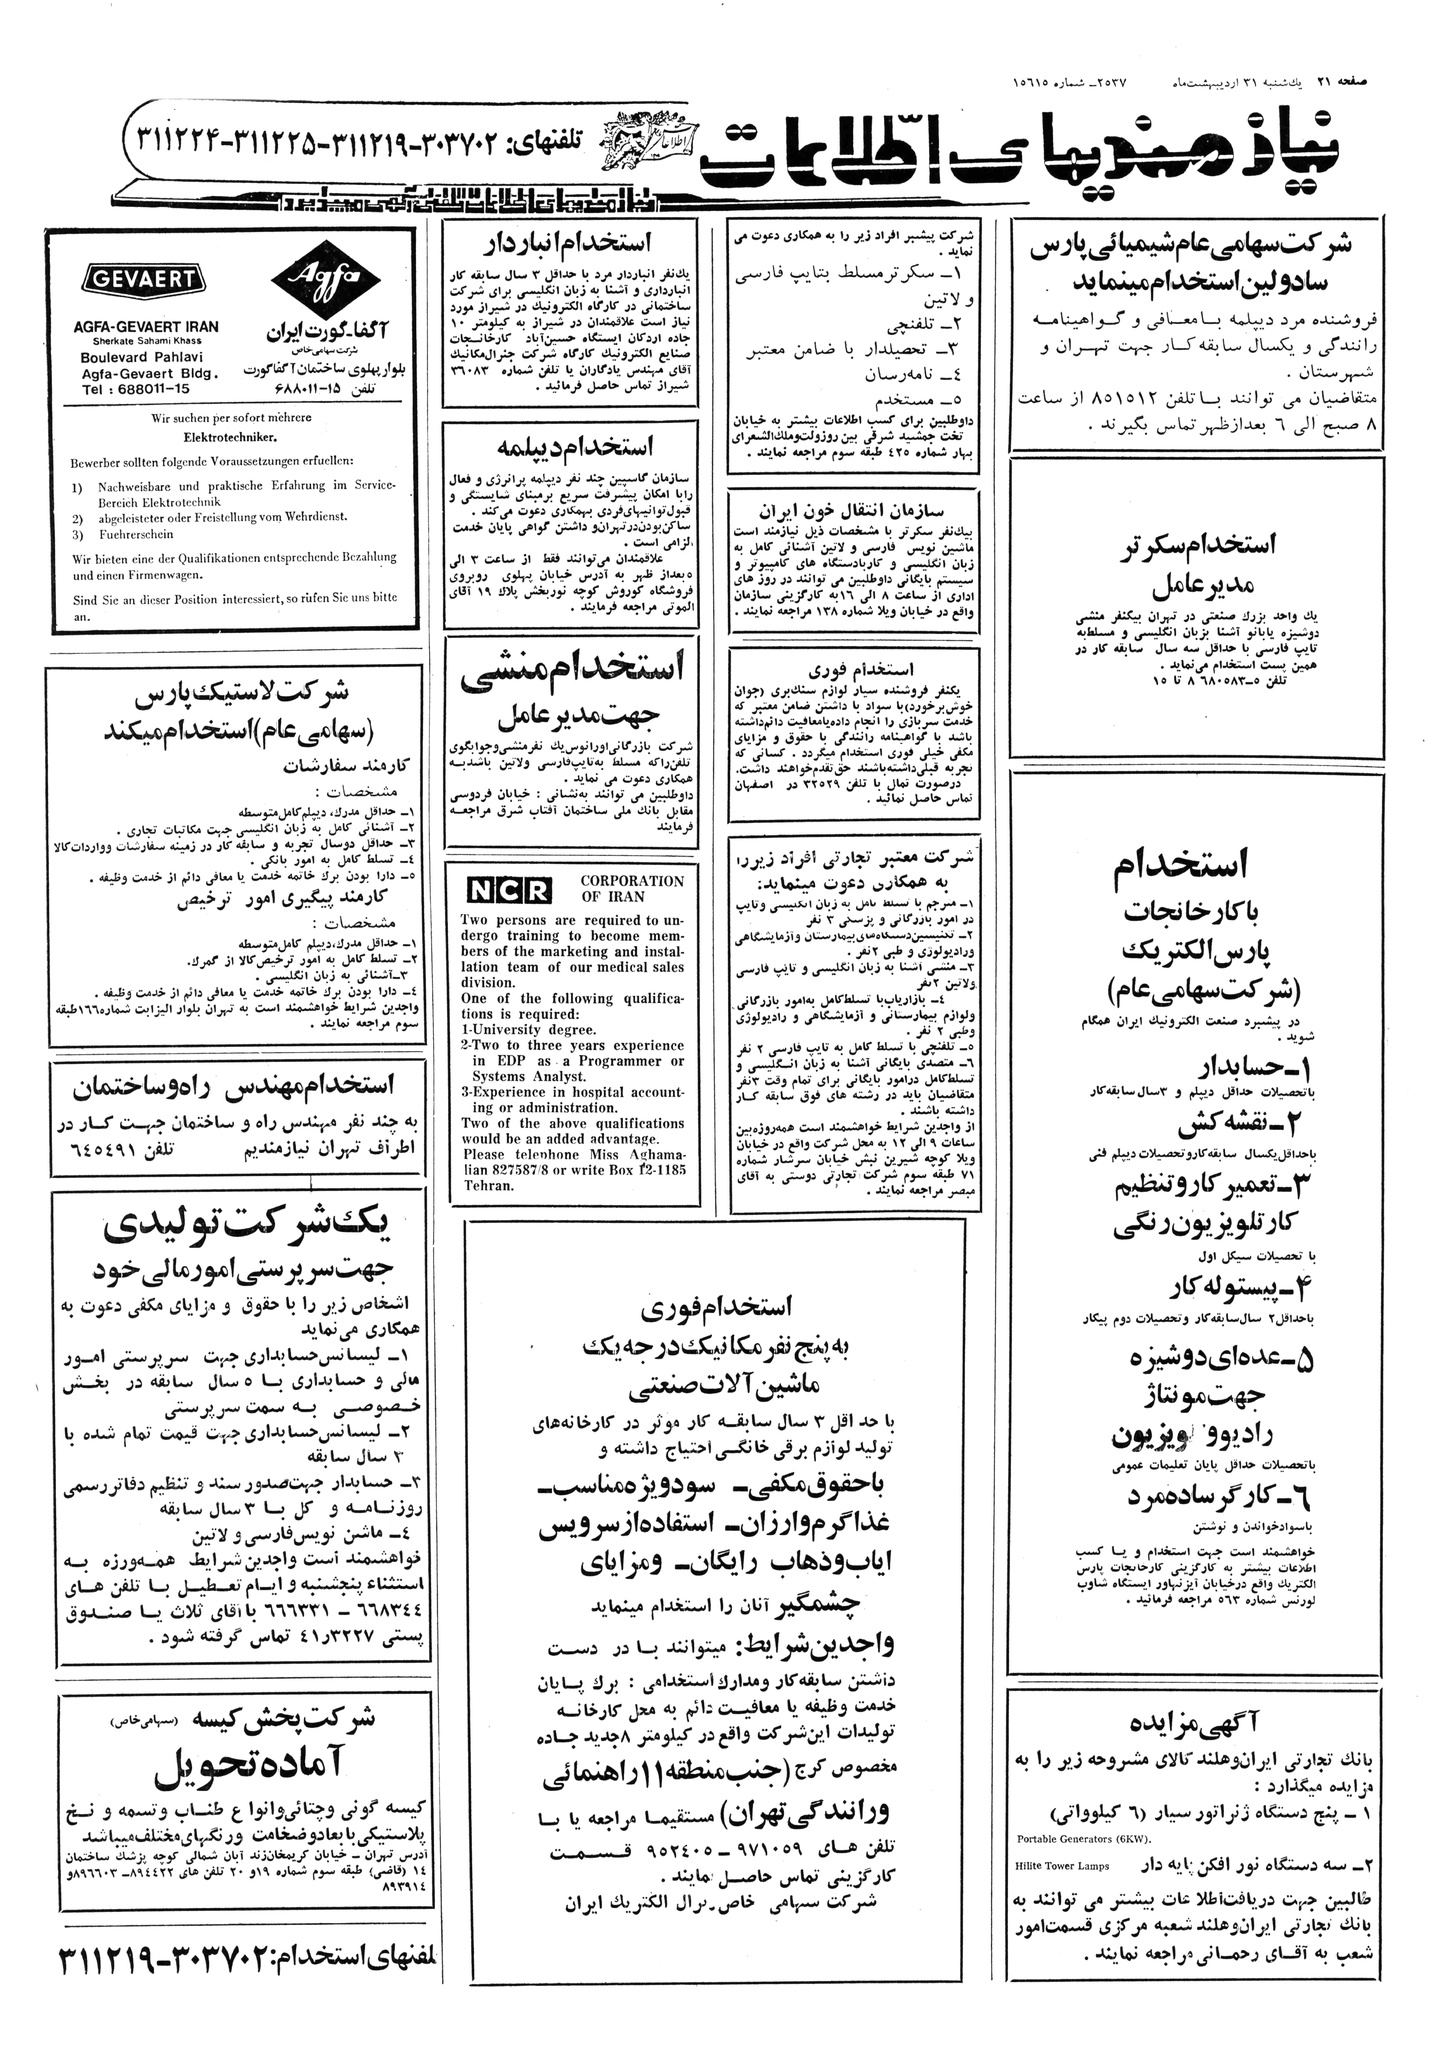 صفحه ۲۱ یک‌شنبه ۳۱ اردیبهشت‌ماه ۲۵۳۷ــ شماره ۱۵۶۱۵
نیازمندیهای اطلاعات
تلفنهای: ۳۰۳۷۰۲-۳۱۱۲۱۹-۳۱۱۲۲۵-۳۱۱۲۲۴
نیازمندیهای اطلاعات تلفنی آگهی میپذیرد
شرکت سهامی عام شیمیائی پارس
سادولین استخدام مینماید
فروشنده مرد دیپلمه با معافی و گواهینامه
رانندگی و یکسال سابقه کار جهت تهران و
شهرستان .
متقاضیان می توانند با تلفن ۸۵۱۵۱۲ از ساعت
۸ صبح الی ۶ بعدازظهر تماس بگیرند .
استخدام سکرتر
مدیر عامل
یک واحد بزرگ صنعتی در تهران بیکنفر منشی
دوشیزه یابانو آشنا بزبان انگلیسی و مسلط‌به
تایپ فارسی با حداقل سه سال سابقه کار در
همین پست استخدام می‌نماید .
تلفن ۵ــ۶۸۰۵۸۳ ۸ تا ۱۵
استخدام
با کارخانجات
پارس الکتریک
(شرکت سهامی عام)
در پیشبرد صنعت الکترونیک ایران همگام
شوید .
۱ــ حسابدار
باتحصیلات حداقل دیپلم و ۳سال سابقه‌کار
۲ــ نقشه کش
باحداقل یکسال سابقه‌کاروتحصیلات دیپلم فنی
۳ــ تعمیر کار و تنظیم
کار تلویزیون رنگی
با تحصیلات سیکل اول
۴ــ پیستوله کار
باحداقل۲ سال سابقه‌کار وتحصیلات دوم پیکار
۵ــ عده‌ای دوشیزه
جهت مونتاژ
رادیو و تلویزیون
باتحصیلات حداقل پایان تعلیمات عمومی
۶ــ کارگر ساده مرد
باسوادخواندن و نوشتن
خواهشمند است جهت استخدام و یا کسب
اطلاعات بیشتر به کارگزینی کارخانجات پارس
الکتریک واقع درخیابان آیزنهاور ایستگاه شاوپ
لورنس شماره ۵۶۳ مراجعه فرمائید .
آگهی مزایده
بانک تجارتی ایران‌وهلند کالای مشروحه زیر را به
مزایده میگذارد :
۱ ــ پنج دستگاه ژنراتور سیار (۶ کیلوواتی)
Portable Generators (6KW).
۲ــ سه دستگاه نور افکن پایه دار Hilite Tower Lamps
طالبین جهت دریافت‌اطلاعات بیشتر می توانند به
بانک تجارتی ایران‌وهلند شعبه مرکزی قسمت‌امور
شعب به آقای رحمانی مراجعه نمایند .
شرکت پیشبر افراد زیر را به همکاری دعوت می
نماید .
۱ــ سکرتر مسلط بتایپ فارسی
و لاتین
۲ــ تلفنچی
۳ــ تحصیلدار با ضامن معتبر
۴ــ نامه‌رسان
۵ــ مستخدم
داوطلبین برای کسب اطلاعات بیشتر به خیابان
تخت جمشید شرقی بین روزولت‌وملک‌الشعرای
بهار شماره ۴۲۵ طبقه سوم مراجعه نمایند .
سازمان انتقال خون ایران
بیک‌نفر سکرتر با مشخصات ذیل نیازمند است
ماشین نویس فارسی و لاتین آشنائی کامل به
زبان انگلیسی و کاربادستگاه های کامپیوتر و
سیستم بایگانی داوطلبین می توانند در روز های
اداری از ساعت ۸ الی ۱۶به کارگزینی سازمان
واقع در خیابان ویلا شماره ۱۳۸ مراجعه نمایند .
استخدام فوری
یکنفر فروشنده سیار لوازم سنگ‌بری (جوان
خوش‌برخورد)با سواد با داشتن ضامن معتبر که
خدمت سربازی را انجام داده‌یامعافیت دائم‌داشته
باشد با گواهینامه رانندگی با حقوق و مزایای
مکفی خیلی فوری استخدام میگردد . کسانی که
تجربه قبلی‌داشته‌باشند حق‌تقدم‌خواهند داشت.
درصورت تمایل با تلفن ۳۲۵۲۹ در اصفهان
تماس حاصل نمائید .
شرکت معتبر تجارتی افراد زیررا
به همکاری دعوت مینماید:
۱ــ مترجم با تسلط کامل به زبان انگلیسی وتایپ
در امور بازرگانی و پزشکی ۳ نفر
۲ــ تکنیسین‌دستگاه‌های‌بیمارستان وآزمایشگاهی
ورادیولوژی و طبی ۲نفر .
۳ــ منشی آشنا به زبان انگلیسی و تایپ فارسی
ولاتین ۲نفر
۴ــ بازاریاب‌با تسلط‌کامل به‌امور بازرگانی
ولوازم بیمارستانی و آزمایشگاهی و رادیولوژی
وطبی ۲ نفر .
۵ــ تلفنچی با تسلط کامل به تایپ فارسی ۲ نفر
۶ــ متصدی بایگانی آشنا به زبان انگلیسی و
تسلط‌کامل درامور بایگانی برای تمام وقت ۳نفر
متقاضیان باید در رشته های فوق سابقه کار
داشته باشند .
از واجدین شرایط خواهشمند است همه‌روزه‌بین
ساعات ۹ الی ۱۲ به محل شرکت واقع در خیابان
ویلا کوچه شیرین نبش خیابان سرشار شماره
۷۱ طبقه سوم شرکت تجارتی دوستی به آقای
مبصر مراجعه نمایند .
استخدام انباردار
یک‌نفر انباردار مرد با حداقل ۳ سال سابقه کار
انبارداری و آشنا به زبان انگلیسی برای شرکت
ساختمانی در کارگاه الکترونیک در شیراز مورد
نیاز است علاقمندان در شیراز به کیلومتر ۱۰
جاده اردکان ایستگاه حسین‌آباد کارخانجات
صنایع الکترونیک کارگاه شرکت جنرال‌مکانیک
آقای مهندس یادگاران یا تلفن شماره ۳۶۰۸۳
شیراز تماس حاصل فرمائید .
استخدام دیپلمه
سازمان گاسپین چند نفر دیپلمه پرانرژی و فعال
رابا امکان پیشرفت سریع برمبنای شایستگی و
قبول‌توانیهای‌فردی بهمکاری دعوت می‌کند .
ساکن‌بودن‌درتهران‌و داشتن گواهی پایان خدمت
الزامی است .
علاقمندان می‌توانند فقط از ساعت ۳ الی
۵بعداز ظهر به آدرس خیابان پهلوی روبروی
فروشگاه کوروش کوچه نوربخش پلاک ۱۹ آقای
الموتی مراجعه فرمایند .
استخدام منشی
جهت مدیر عامل
شرکت بازرگانی‌اورانوس‌یک نفرمنشی‌وجوابگوی
تلفن‌راکه مسلط به‌تایپ‌فارسی ولاتین باشدبه
همکاری دعوت می نماید .
داوطلبین می توانند به‌نشانی : خیابان فردوسی
مقابل بانک ملی ساختمان آفتاب شرق مراجعه
فرمایند
NCR CORPORATION
OF IRAN
Two persons are required to un-
dergo training to become mem-
bers of the marketing and instal-
lation team of our medical sales
division.
One of the following qualifica-
tions is required:
1-University degree.
2-Two to three years experience
in EDP as a Programmer or
Systems Analyst.
3-Experience in hospital account-
ing or administration.
Two of the above qualifications
would be an added advantage.
Please telephone Miss Aghama-
lian 827587/8 or write Box 12-1185
Tehran.
استخدام فوری
به پنج نفر مکانیک درجه یک
ماشین آلات صنعتی
با حداقل ۳ سال سابقه کار موثر در کارخانه‌های
تولید لوازم برقی خانگی احتیاج داشته و
با حقوق مکفی ــ سود ویژه مناسب ــ
غذا گرم و ارزان ــ استفاده از سرویس
ایاب و ذهاب رایگان ــ و مزایای
چشمگیر آنان را استخدام مینماید
واجدین شرایط: میتوانند با در دست
داشتن سابقه‌کار ومدارک استخدامی : برگ پایان
خدمت وظیفه یا معافیت دائم به محل کارخانه
تولیدات این‌شرکت واقع در کیلومتر ۸جدید جاده
مخصوص کرج (جنب منطقه ۱۱ راهنمائی
و رانندگی تهران) مستقیما مراجعه یا با
تلفن های ۹۷۱۰۵۹ ــ ۹۵۲۴۰۵ قسمت
کارگزینی تماس حاصل نمایند .
شرکت سهامی خاص جنرال الکتریک ایران
GEVAERT Agfa
AGFA-GEVAERT IRAN
Sherkate Sahami Khass
Boulevard Pahlavi
Agfa-Gevaert Bldg.
Tel : 688011-15
آگفا-گورت ایران
شرکت سهامی خاص
بلوار پهلوی ساختمان آگفا گورت
تلفن ۱۵-۶۸۸۰۱۱
Wir suchen per sofort mehrere
Elektrotechniker.
Bewerber sollten folgende Voraussetzungen erfuellen:
1) Nachweisbare und praktische Erfahrung im Service-
Bereich Elektrotechnik
2) abgeleisteter oder Freistellung vom Wehrdienst.
3) Fuehrerschein
Wir bieten eine der Qualifikationen entsprechende Bezahlung
und einen Firmenwagen.
Sind Sie an dieser Position interessiert, so rufen Sie uns bitte
an.
شرکت لاستیک پارس
(سهامی عام) استخدام میکند
کارمند سفارشات
مشخصات :
۱ــ حداقل مدرک، دیپلم کامل متوسطه
۲ــ آشنائی کامل به زبان انگلیسی جهت مکاتبات تجاری .
۳ــ حداقل دوسال تجربه و سابقه کار در زمینه سفارشات وواردات‌کالا
۴ــ تسلط کامل به امور بانکی .
۵ــ دارا بودن برگ خاتمه خدمت یا معافی دائم از خدمت وظیفه .
کارمند پیگیری امور ترخیص
مشخصات :
۱ــ حداقل مدرک، دیپلم کامل متوسطه
۲ــ تسلط کامل به امور ترخیص کالا از گمرک.
۳ــآشنائی به زبان انگلیسی .
۴ــ دارا بودن برگ خاتمه خدمت یا معافی دائم از خدمت وظیفه .
واجدین شرایط خواهشمند است به تهران بلوار الیزابت شماره۱۶۶طبقه
سوم مراجعه نمایند .
استخدام مهندس راه و ساختمان
به چند نفر مهندس راه و ساختمان جهت کار در
اطراف تهران نیازمندیم تلفن ۶۴۵۴۹۱
یک شرکت تولیدی
جهت سرپرستی امور مالی خود
اشخاص زیر را با حقوق و مزایای مکفی دعوت به
همکاری می‌نماید
۱ــ لیسانس حسابداری جهت سرپرستی امور
مالی و حسابداری با ۵ سال سابقه در بخش
خصوصی به سمت سرپرستی
۲ــ لیسانس حسابداری جهت قیمت تمام شده با
۳ سال سابقه
۳ــ حسابدار جهت‌صدور سند و تنظیم دفاتررسمی
روزنامه و کل با ۳ سال سابقه
۴ــ ماشن نویس فارسی و لاتین
خواهشمند است واجدین شرایط همه‌ورزه به
استثناء پنجشنبه و ایام تعطیل با تلفن های
۶۶۸۳۴۴ ــ ۶۶۶۳۳۱ با آقای ثلاث یا صندوق
پستی ۴۱٫۳۲۲۷ تماس گرفته شود .
شرکت پخش کیسه (سهامی خاص)
آماده تحویل
کیسه گونی وچتائی وانواع طناب وتسمه و نخ
پلاستیکی با ابعاد و ضخامت و رنگهای مختلف میباشد
آدرس تهران ــ خیابان کریمخان‌زند آبان شمالی کوچه پزشک ساختمان
۱۴ (قاضی) طبقه سوم شماره ۱۹و ۲۰ تلفن های ۸۹۴۴۲۲ــ ۸۹۶۶۰۳و
۸۹۳۹۱۴
تلفنهای استخدام: ۳۰۳۷۰۲-۳۱۱۲۱۹